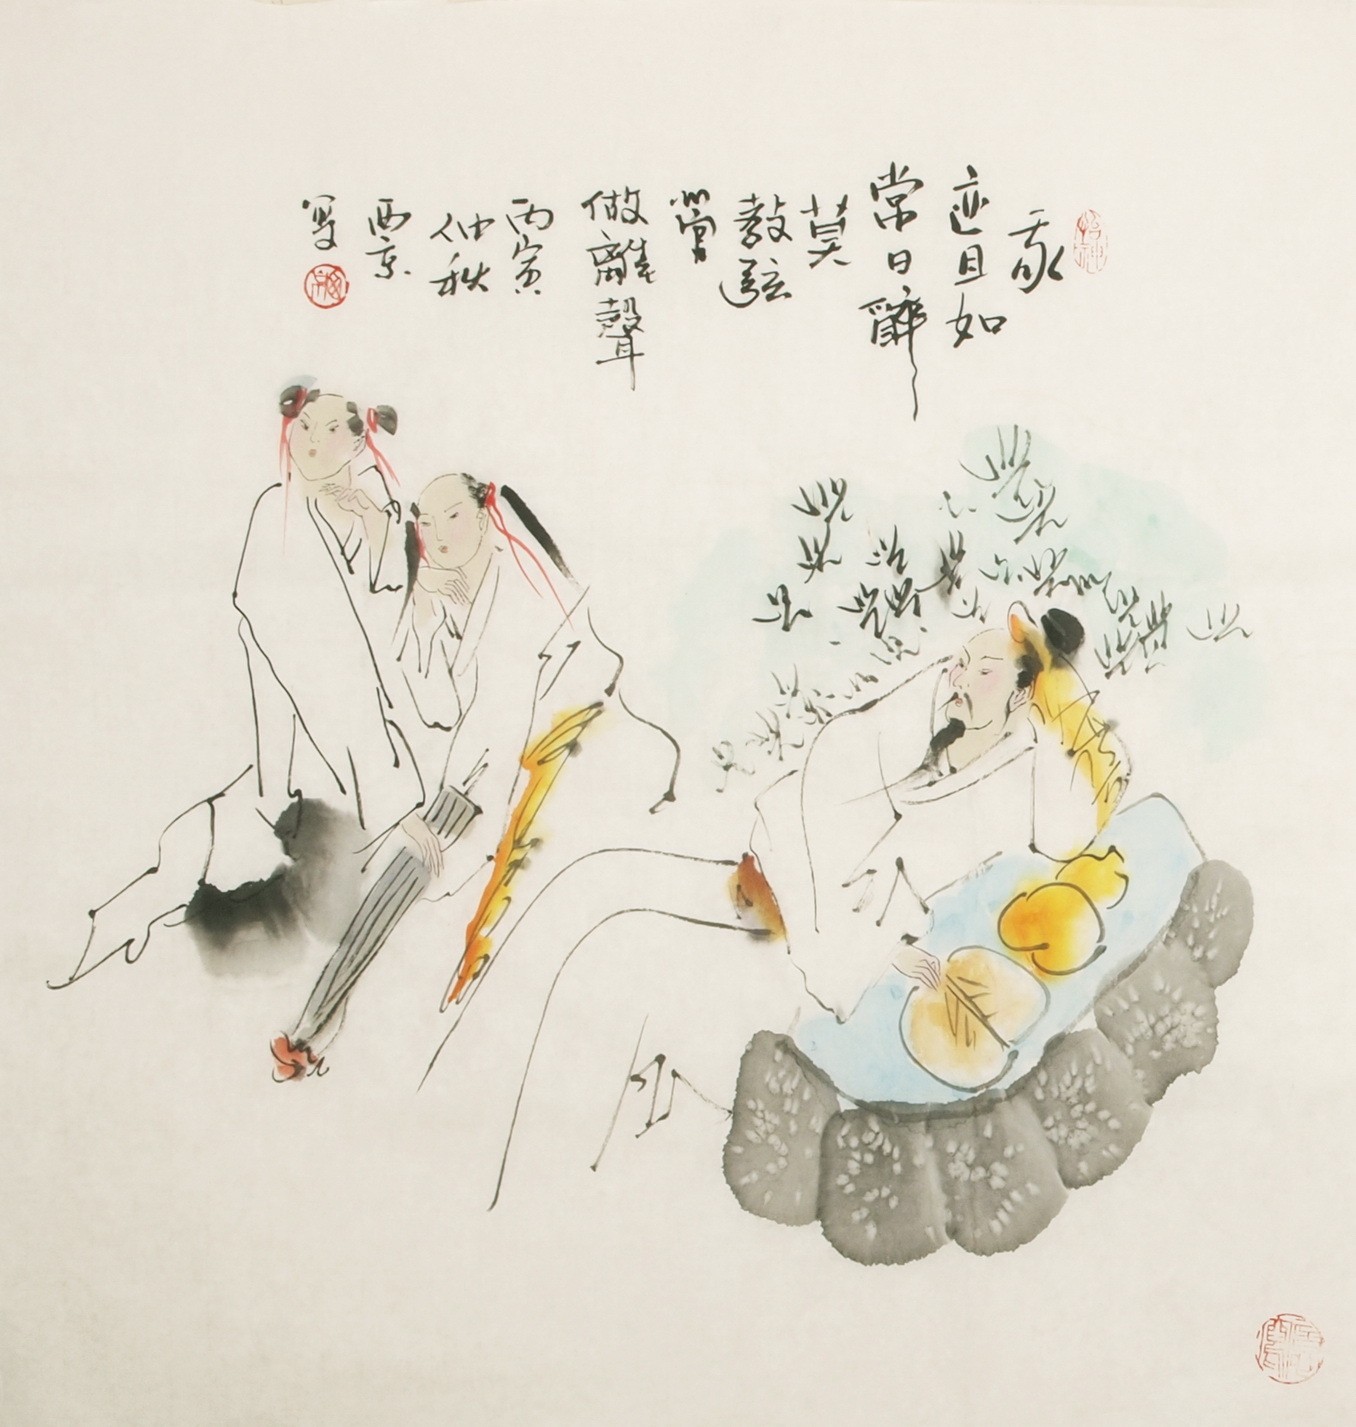 我
亦且如
常日醉
莫
教弦
管
做離聲
丙寅
仲秋
西京
寫